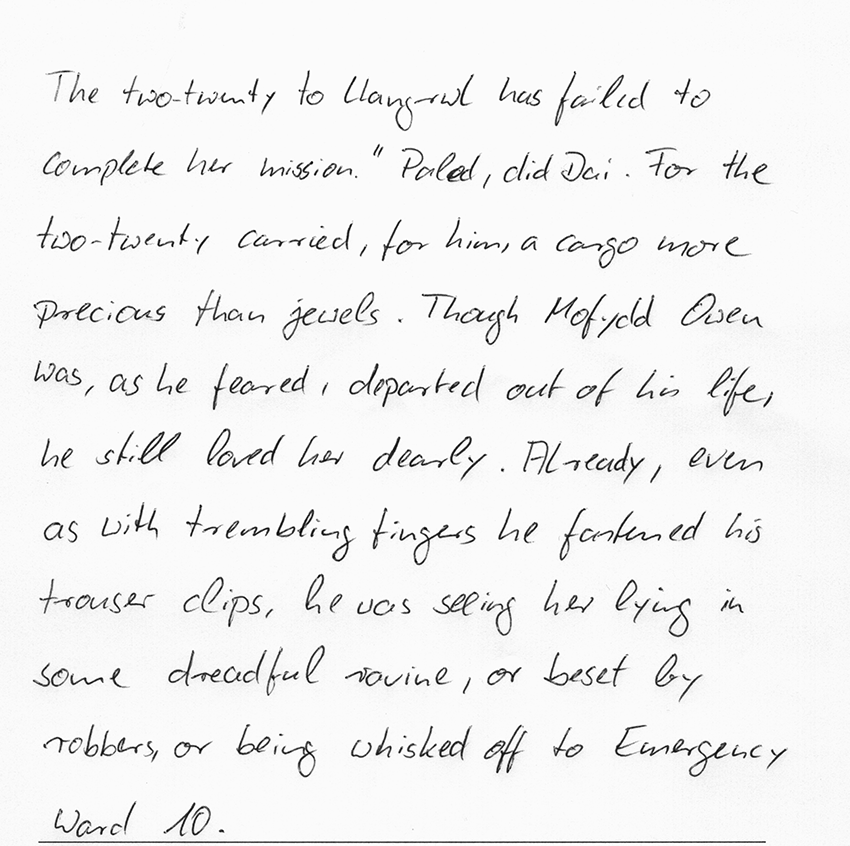 The two-twenty to Llang-rwl has failed to
complete her mission." Paled, did Dai. For the
two-twenty carried, for him, a cargo more
precious than jewels. Though Mofydd Owen
was, as he feared, departed out of his life,
he still loved her dearly. Already, even
as with trembling fingers he fastened his
trouser clips, he was seeing her lying in
some dreadful ravine, or beset by
robbers, or being whisked off to Emergency
Ward 10.